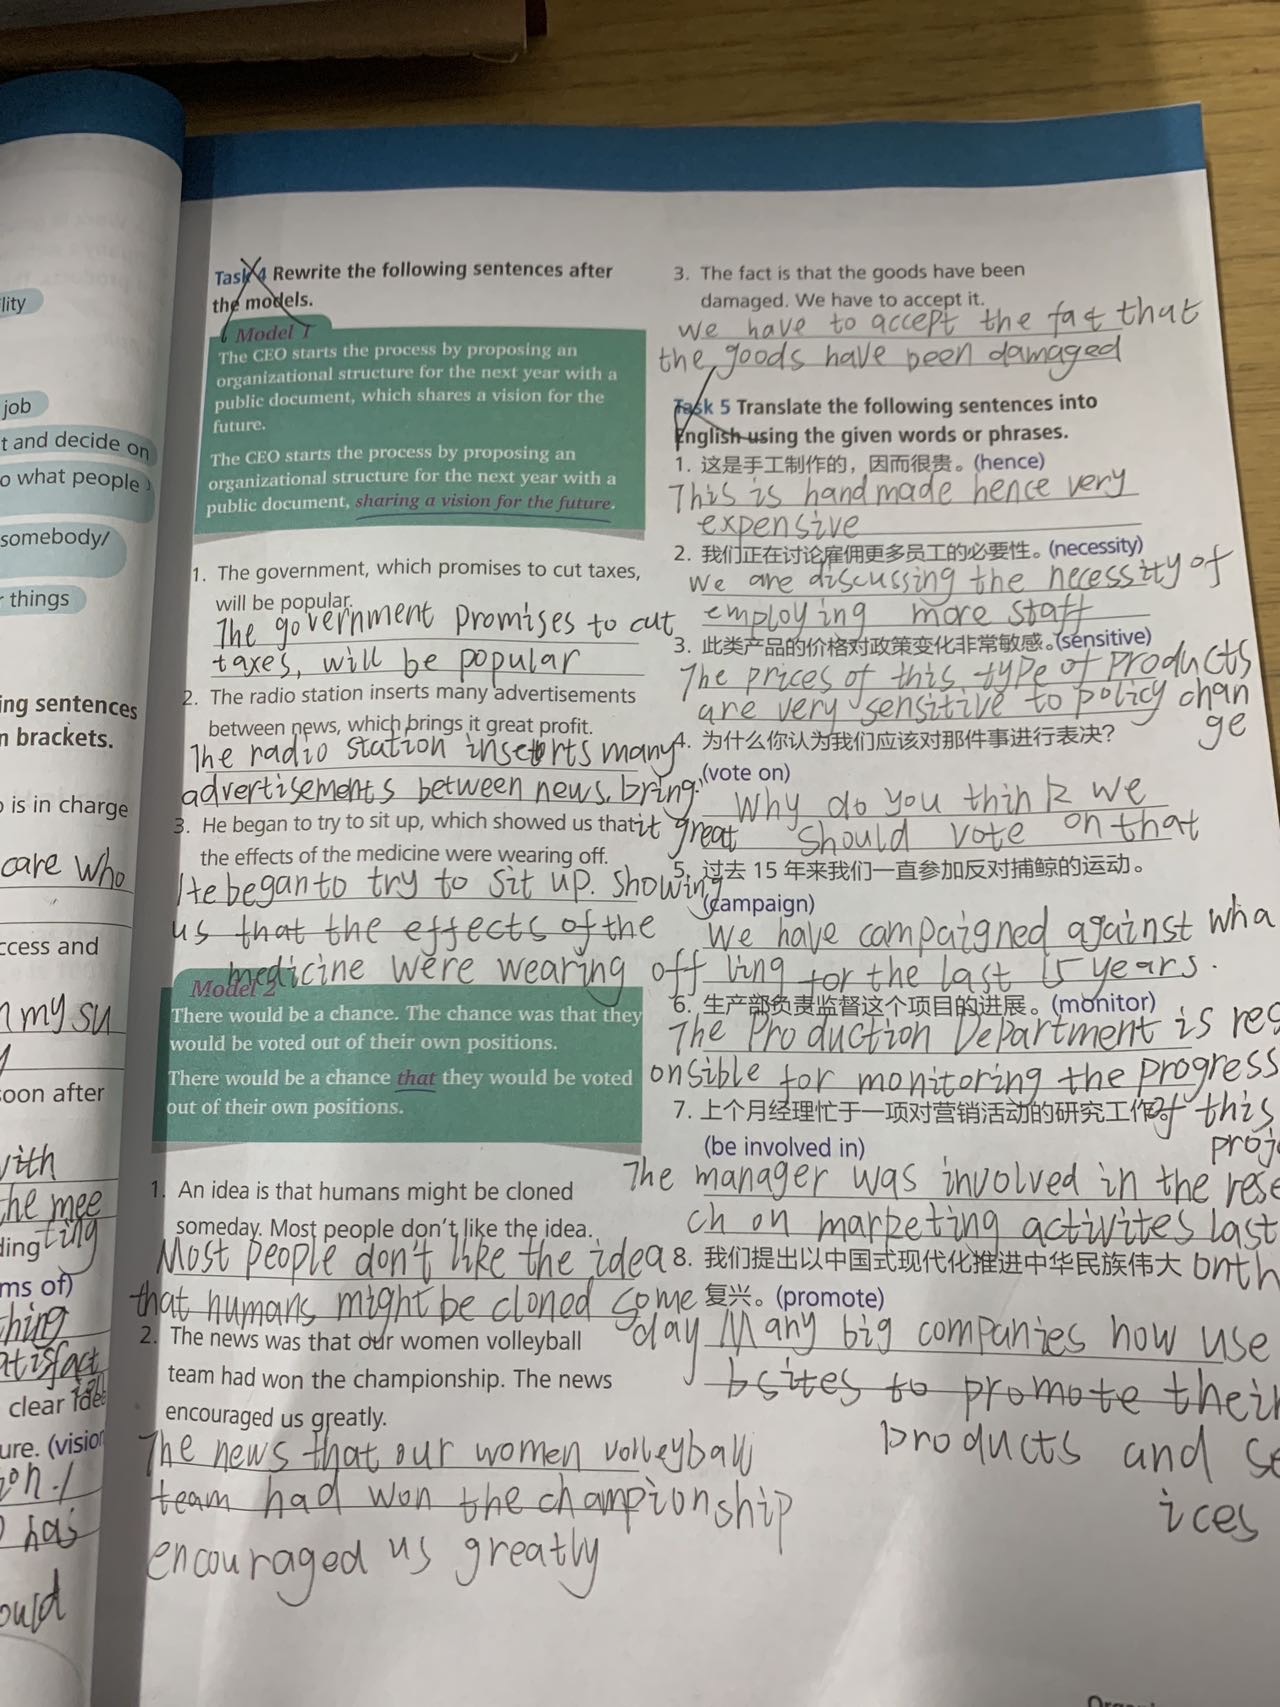 lity
job
t and decide on
o what people
somebody/
things
ing sentences
n brackets.
is in charge
care who
ccess and
n my su
oon after
with
the mee
ting
ding
ms of)
thing
atisfact
ion
clear idea
ure. (vision
on /
has
ould
Task 4 Rewrite the following sentences after
the models.
Model 1
The CEO starts the process by proposing an
organizational structure for the next year with a
public document, which shares a vision for the
future.
The CEO starts the process by proposing an
organizational structure for the next year with a
public document, sharing a vision for the future.
1. The government, which promises to cut taxes,
will be popular.
The government promises to cut
taxes, will be popular
2. The radio station inserts many advertisements
between news, which brings it great profit.
The radio station inserts many
advertisements between news, bring
it great
3. He began to try to sit up, which showed us that
the effects of the medicine were wearing off.
He began to try to sit up. showing
us that the effects of the
medicine were wearing off
Model 2
There would be a chance. The chance was that they
would be voted out of their own positions.
There would be a chance that they would be voted
out of their own positions.
1. An idea is that humans might be cloned
someday. Most people don't like the idea.
Most people don't like the idea
that humans might be cloned some
day
2. The news was that our women volleyball
team had won the championship. The news
encouraged us greatly.
The news that our women volleyball
team had won the championship
encouraged us greatly
3. The fact is that the goods have been
damaged. We have to accept it.
we have to accept the fact that
the goods have been damaged
Task 5 Translate the following sentences into
English using the given words or phrases.
1. 这是手工制作的，因而很贵。(hence)
This is handmade hence very
expensive
2. 我们正在讨论雇佣更多员工的必要性。(necessity)
we are discussing the necessity of
employing more staff
3. 此类产品的价格对政策变化非常敏感。(sensitive)
The prices of this type of products
are very sensitive to policy chan
ge
4. 为什么你认为我们应该对那件事进行表决？
(vote on)
Why do you think we
should vote on that
5. 过去 15 年来我们一直参加反对捕鲸的运动。
(campaign)
We have campaigned against wha
ling for the last 15 years.
6. 生产部负责监督这个项目的进展。(monitor)
The Production Department is res
onsible for monitoring the progress
of this
proj
7. 上个月经理忙于一项对营销活动的研究工作。
(be involved in)
The manager was involved in the rese
ch on marketing activites last
onth
8. 我们提出以中国式现代化推进中华民族伟大
复兴。(promote)
Many big companies now use
bsites to promote their
products and se
ices